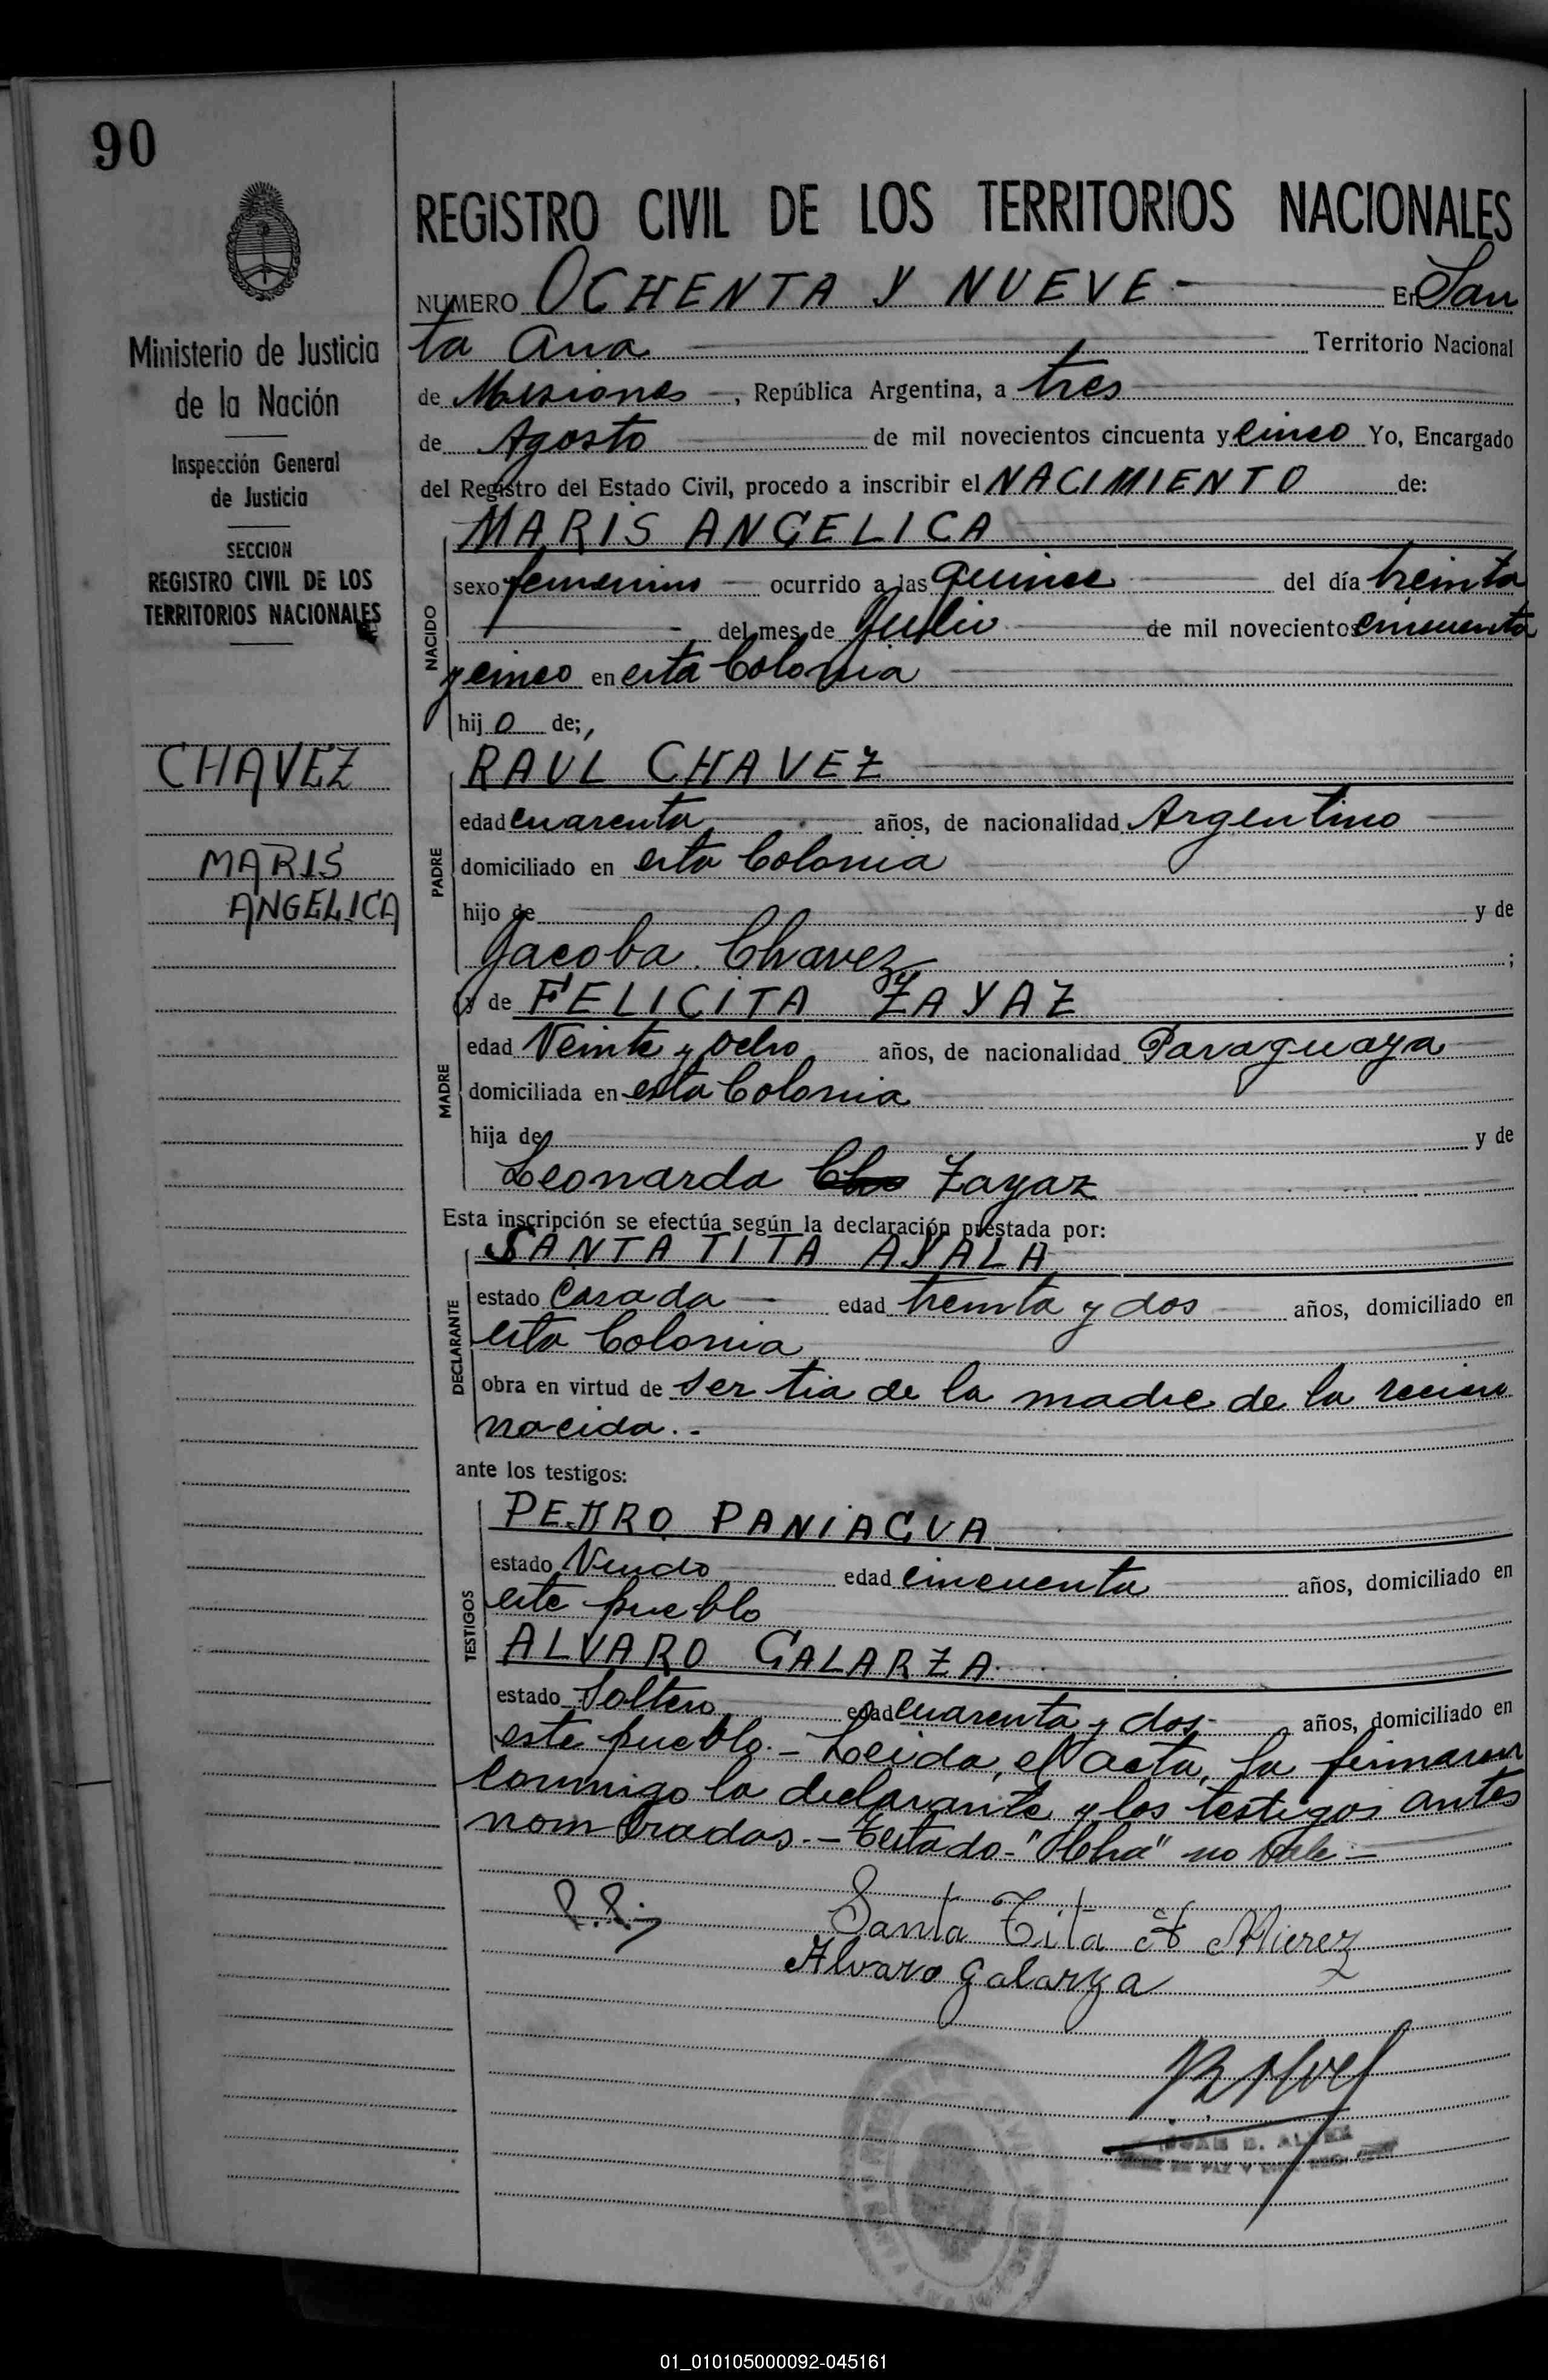 90
Ministerio de Justicia
de la Nación
Inspección General
de Justicia
SECCION
REGISTRO CIVIL DE LOS
TERRITORIOS NACIONALES
CHAVEZ
MARIS
ANGELICA
REGISTRO CIVIL DE LOS TERRITORIOS NACIONALES
NUMERO OCHENTA Y NUEVE - En San
ta Ana Territorio Nacional
de Misiones -, República Argentina, a tres
de Agosto de mil novecientos cincuenta y cinco Yo, Encargado
del Registro del Estado Civil, procedo a inscribir el NACIMIENTO de:
MARIS ANGELICA
NACIDO
sexo femenino - ocurrido a las quince del día treinta
del mes de Julio de mil novecientos cincuenta
y cinco en esta Colonia
hij o de;,
PADRE
RAUL CHAVEZ
edad cuarenta años, de nacionalidad Argentino
domiciliado en esta Colonia
hijo de y de
Jacoba Chavez ;
MADRE
y de FELICITA ZAYAZ
edad Veinte y ocho años, de nacionalidad Paraguaya
domiciliada en esta Colonia
hija de y de
Leonarda Cha Zayaz
Esta inscripción se efectúa según la declaración prestada por:
DECLARANTE
SANTA TITA AYALA
estado Casada - edad treinta y dos años, domiciliado en
esta Colonia
obra en virtud de ser tia de la madre de la recien
nacida.-
ante los testigos:
TESTIGOS
PEDRO PANIAGUA
estado Viudo edad cincuenta años, domiciliado en
este pueblo
ALVARO GALARZA
estado Soltero edad cuarenta y dos - años, domiciliado en
este pueblo.- Leida, el acta, la firmaron
conmigo la declarante y los testigos antes
nombrados.- Testado - "Cha" no vale -
P.P.
Santa Tita A Mierez
Alvaro Galarza
JUAN B. ALVEZ
JUEZ DE PAZ Y
01_010105000092-045161